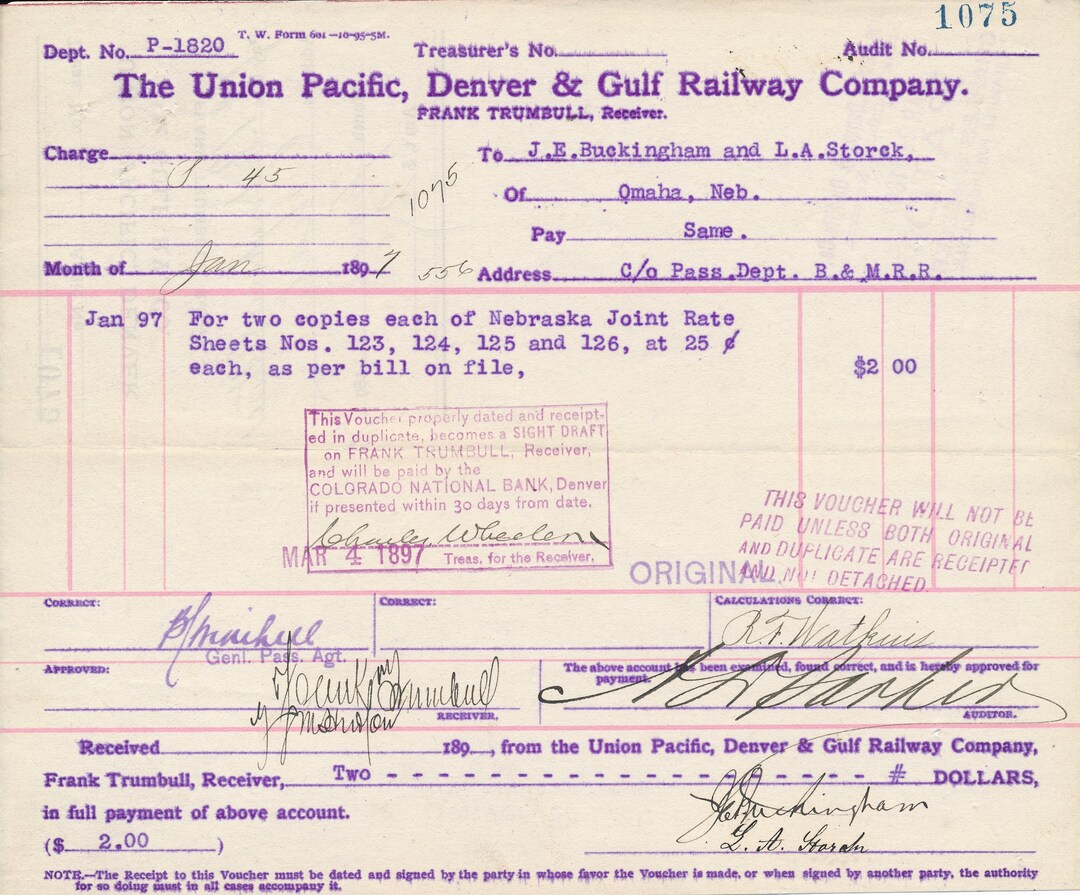 1075
Dept. No. P-1820 T. W. Form 601-10-95-5M. Treasurer's No. Audit No.
The Union Pacific, Denver & Gulf Railway Company.
FRANK TRUMBULL, Receiver.
Charge
45
1075
To J.E.Buckingham and L.A.Storck,
Of Omaha, Neb.
Pay Same.
Month of Jan 1897
556
Address C/o Pass.Dept. B.& M.R.R.
Jan 97 For two copies each of Nebraska Joint Rate
Sheets Nos. 123, 124, 125 and 126, at 25 ¢
each, as per bill on file, $2 00
This Voucher properly dated and receipt-
ed in duplicate, becomes a SIGHT DRAFT
on FRANK TRUMBULL, Receiver,
and will be paid by the
COLORADO NATIONAL BANK, Denver
if presented within 30 days from date.
Charles Wheeler
MAR 4 1897 Treas. for the Receiver.
THIS VOUCHER WILL NOT BE
PAID UNLESS BOTH ORIGINAL
AND DUPLICATE ARE RECEIPTED
AND NOT DETACHED.
ORIGINAL
CORRECT: CORRECT: CALCULATIONS CORRECT:
R.F. Watkins
Genl. Pass. Agt.
APPROVED:
Frank Trumbull
RECEIVER.
The above account has been examined, found correct, and is hereby approved for
payment.
AUDITOR.
Received 189 , from the Union Pacific, Denver & Gulf Railway Company,
Frank Trumbull, Receiver, Two - - - - - - - - - - - - - - - - - - # DOLLARS,
in full payment of above account.
J.E. Buckingham
($ 2.00 )
L. A. Storck
NOTE.—The Receipt to this Voucher must be dated and signed by the party in whose favor the Voucher is made, or when signed by another party, the authority
for so doing must in all cases accompany it.